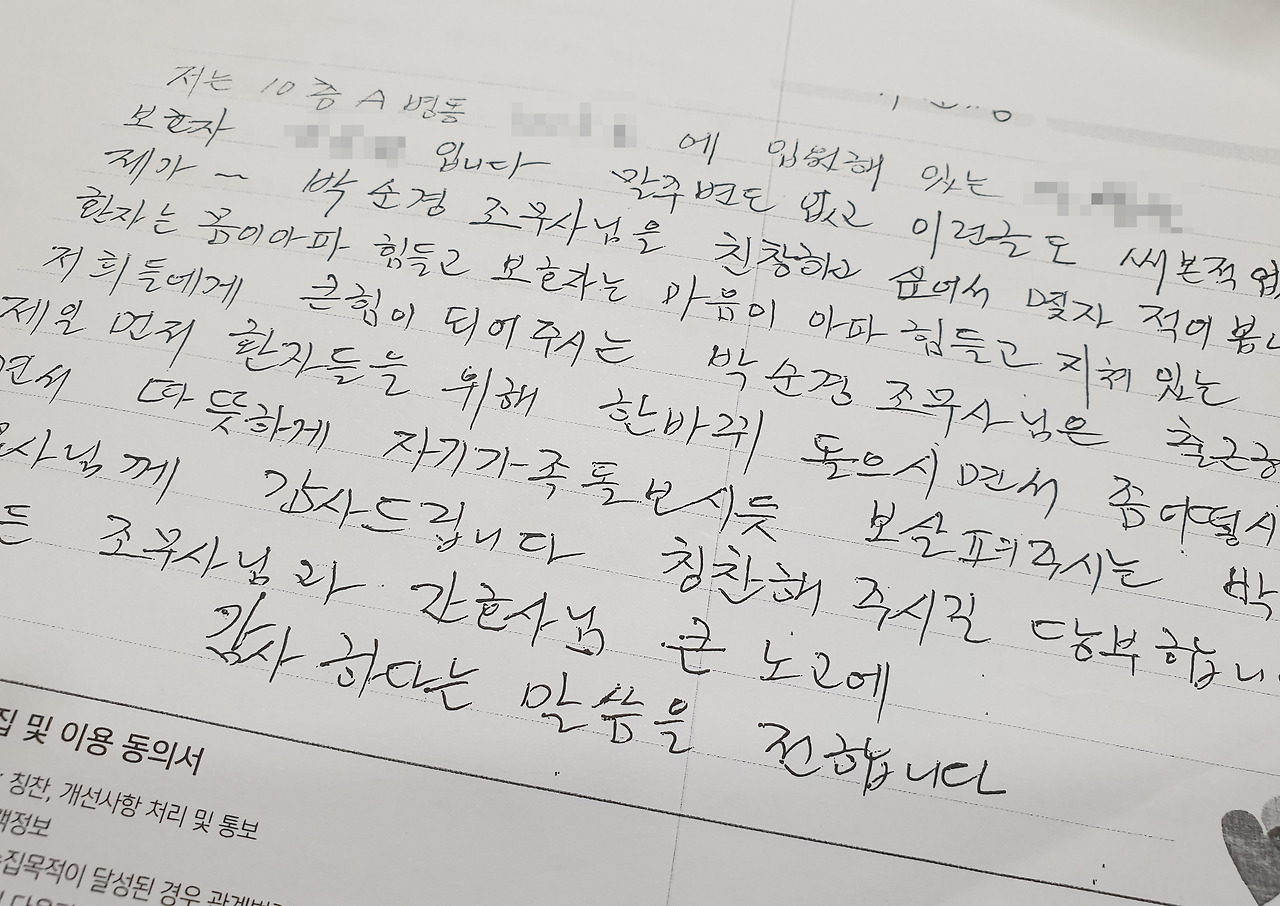 저는 10층 A 병동 에 입원해 있는
보호자 입니다 말주변도 없고 이런글도 써본적 없
제가~ 박순경 조무사님을 친창하고 싶어서 몇자 적어봅니
환자는 몸이아파 힘들고 보호자는 마음이 아파 힘들고 지쳐 있는
저희들에게 큰힘이 되어주시는 박순경 조무사님은 출근하
제일 먼저 환자들을 위해 한바퀴 돌으시면서 좀어떻시
면서 따뜻하게 자기가족돌보시듯 보살펴주시는 박
사님께 감사드립니다 칭찬해 주시길 당부합니
든 조무사님과 간호사님 큰 노고에
감사하다는 말씀을 전합니다
집 및 이용 동의서
칭찬, 개선사항 처리 및 통보
객정보
집목적이 달성된 경우 관계법